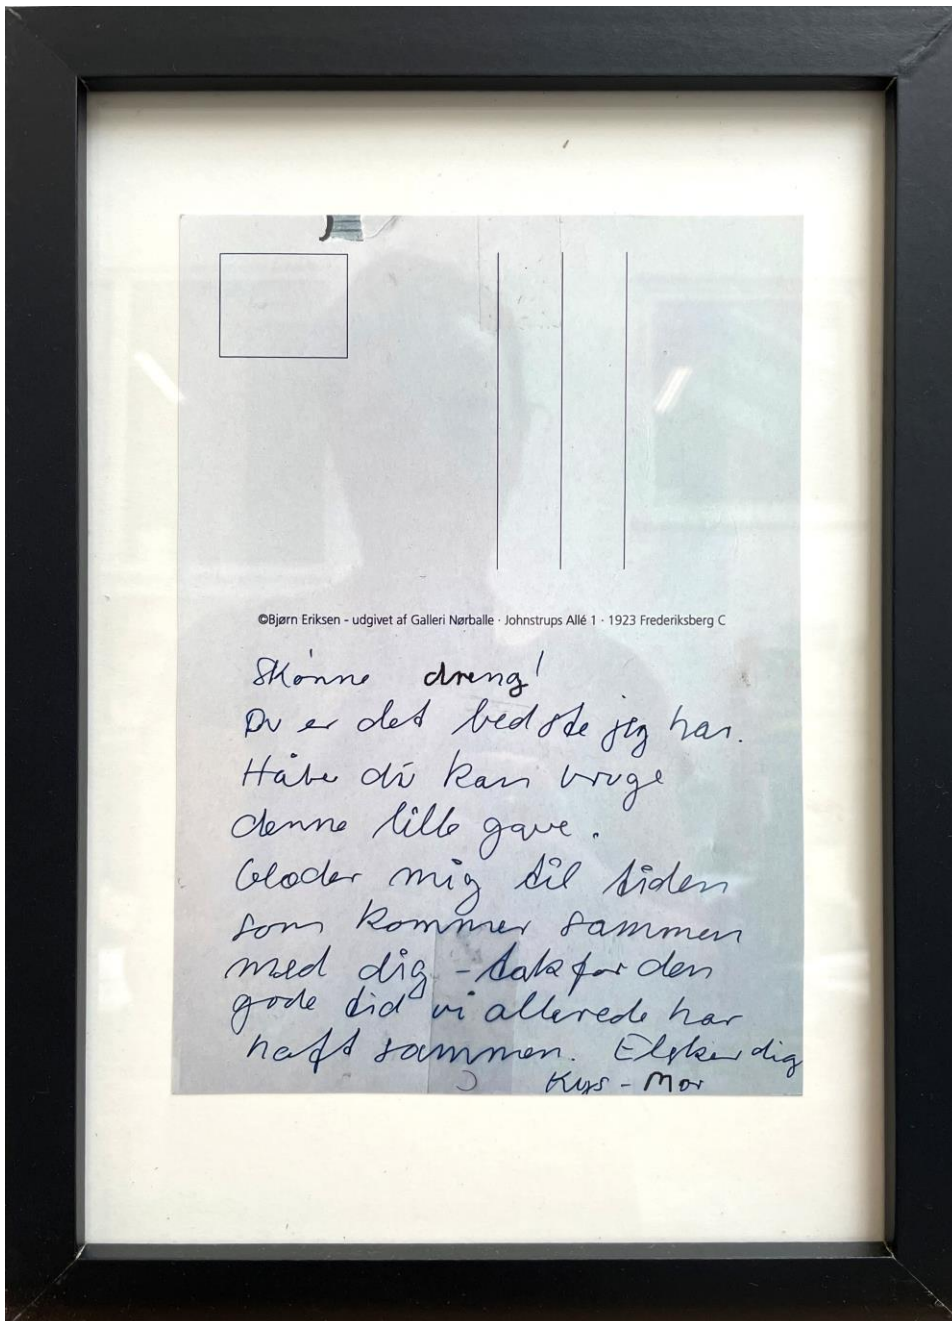 ©Bjørn Eriksen - udgivet af Galleri Nørballe · Johnstrups Allé 1 · 1923 Frederiksberg C
Skønne dreng!
Du er det bedste jeg har.
Håber du kan bruge
denne lille gave.
Glæder mig til tiden
som kommer sammen
med dig - tak for den
gode tid vi allerede har
haft sammen. Elsker dig
Kys - Mor